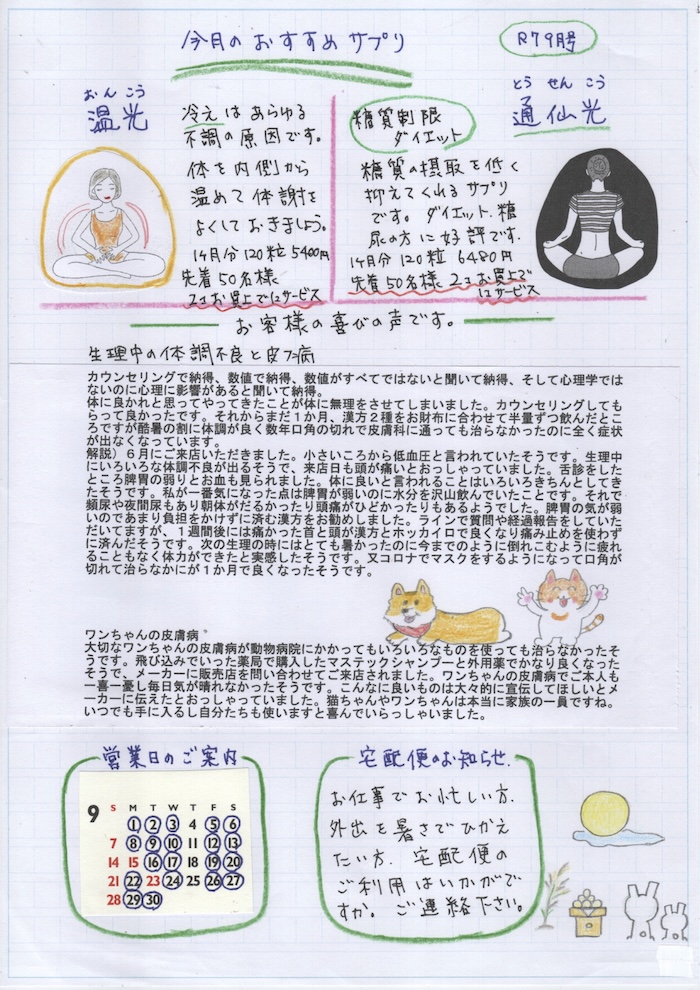 今月のおすすめサプリ
R7 9月号
おんこう
温光
冷えはあらゆる
不調の原因です。
体を内側から
温めて体謝を
よくしておきましょう。
1ヶ月分 120粒 5400円
先着50名様
2コお買上で1コサービス
糖質制限
ダイエット
糖質の摂取を低く
抑えてくれるサプリ
です。ダイエット、糖
尿の方に好評です。
1ヶ月分 120粒 6480円
先着50名様 2コお買上で
1コサービス
とうせんこう
通仙光
お客様の喜びの声です。
生理中の体調不良と皮フ病
カウンセリングで納得、数値で納得、数値がすべてではないと聞いて納得、そして心理学では
ないのに心理に影響があると聞いて納得。
体に良かれと思ってやってきたことが体に無理をさせてしまいました。カウンセリングしても
らって良かったです。それからまだ1か月、漢方2種をお財布に合わせて半量ずつ飲んだとこ
ろですが酷暑の割に体調が良く数年口角の切れで皮膚科に通っても治らなかったのに全く症状
が出なくなっています。
解説)6月にご来店いただきました。小さいころから低血圧と言われていたそうです。生理中
にいろいろな体調不良が出るそうで、来店日も頭が痛いとおっしゃっていました。舌診をした
ところ脾胃の弱りとお血も見られました。体に良いと言われることはいろいろきちんとしてき
たそうです。私が一番気になった点は脾胃が弱いのに水分を沢山飲んでいたことです。それで
頻尿や夜間尿もあり朝体がだるかったり頭痛がひどかったりもあるようでした。脾胃の気が弱
いのであまり負担をかけずに済む漢方をお勧めしました。ラインで質問や経過報告をしていた
だいてますが、1週間後には痛かった首と頭が漢方とホッカイロで良くなり痛み止めを使わず
に済んだそうです。次の生理の時にはとても暑かったのに今までのように倒れこむように疲れ
ることもなく体力ができたと実感したそうです。又コロナでマスクをするようになって口角が
切れて治らなかにが1か月で良くなったそうです。
ワンちゃんの皮膚病
大切なワンちゃんの皮膚病が動物病院にかかってもいろいろなものを使っても治らなかったそ
うです。飛び込みでいった薬局で購入したマステックシャンプーと外用薬でかなり良くなった
そうで、メーカーに販売店を問い合わせてご来店されました。ワンちゃんの皮膚病でご本人も
一喜一憂し毎日気が晴れなかったそうです。こんなに良いものは大々的に宣伝してほしいとメ
ーカーに伝えたとおっしゃっていました。猫ちゃんやワンちゃんは本当に家族の一員ですね。
いつでも手に入るし自分たちも使いますと喜んでいらっしゃいました。
営業日のご案内
9 S M T W T F S
1 2 3 4 5 6
7 8 9 10 11 12 13
14 15 16 17 18 19 20
21 22 23 24 25 26 27
28 29 30
宅配便のお知らせ.
お仕事でお忙しい方.
外出を暑さでひかえ
たい方. 宅配便の
ご利用はいかがで
すか。ご連絡下さい。